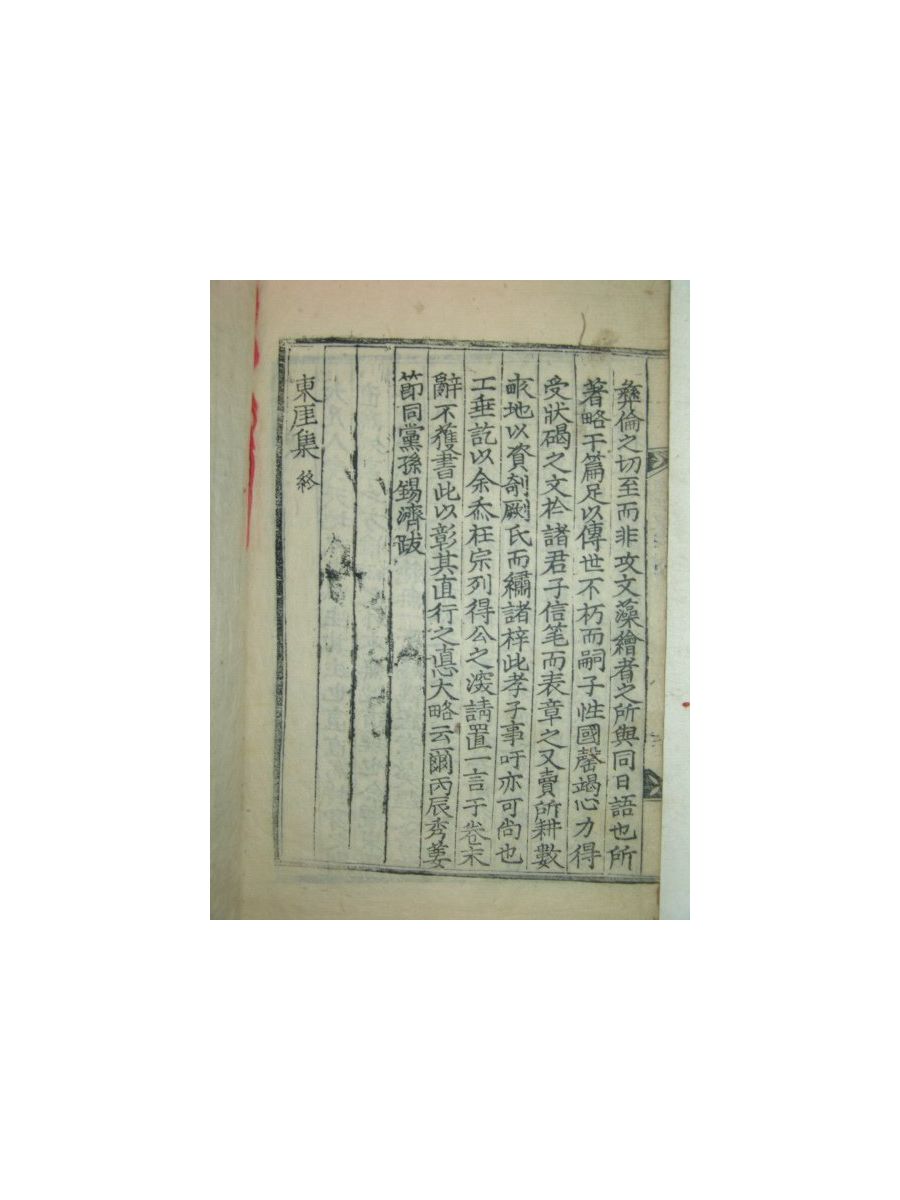 彛倫之切至而非攻文藻繪者之所與同日語也所
著略干篇足以傳世不朽而嗣子性國罄竭心力得
受狀碣之文扵諸君子信笔而表章之又賣所耕數
畒地以資剞劂氏而繡諸梓此孝子事吁亦可尚也
工垂訖以余忝在宗列得公之深請置一言于卷末
辭不獲書此以彰其直行之悳大略云爾丙辰秀葽
節同黨孫錫濟跋
東厓集 終